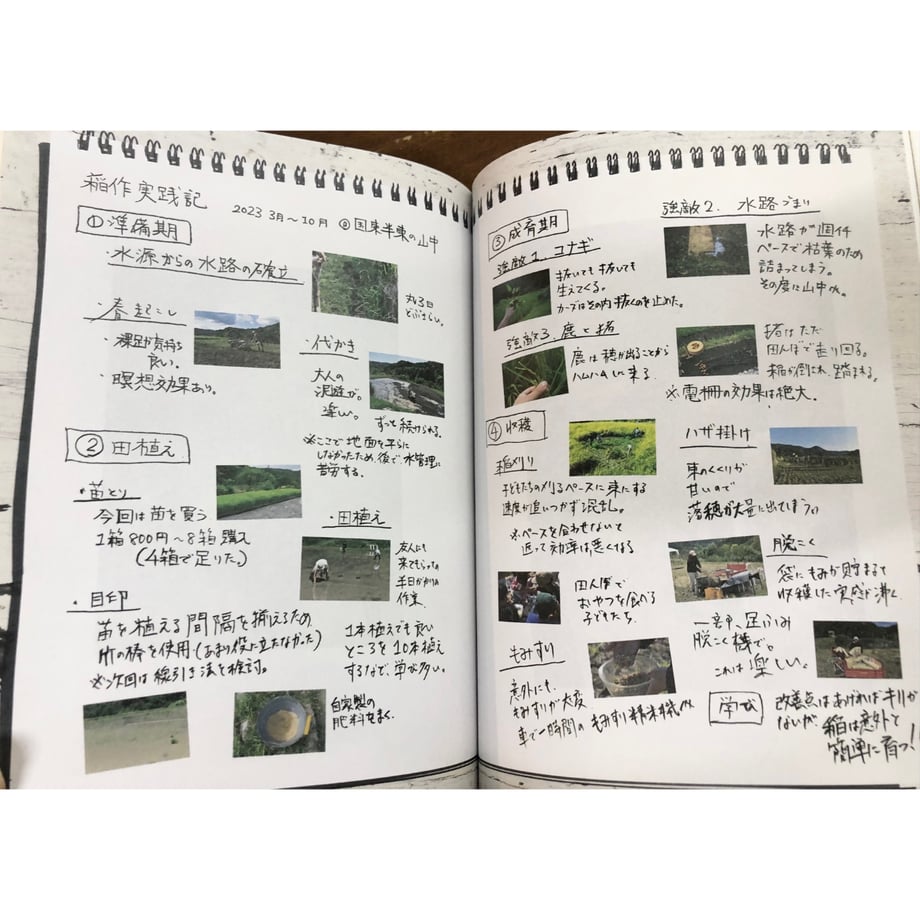 稲作実践記
2023 3月〜10月 @国東半東の山中
①準備期
・水源からの水路の確立
丸3日
どぶさらい。
・春起こし
・裸足が気持ち
良い。
・瞑想効果あり。
・代かき
大人の
泥遊び。
楽しい。
ずっと続けられる。
※ここで地面を平らに
しなかったため、後で、水管理に
苦労する。
②田植え
・苗とり
今回は苗を買う
1箱800円〜8箱購入
(4箱で足りた。)
・田植え
友人にも
来てもらっての
半日がかりの
作業
・目印
苗を植える間隔を揃えるため
竹の棒を使用(あまり役に立たなかった)
※次回は線引き法を検討。
1本植えでも良い
ところを10本植え
するなど、単な多い。
自家製の
肥料をまく。
③成育期
強敵1. コナギ
抜いても抜いても
生えてくる。
カーズはその内抜くのを止めた。
強敵2. 水路づまり
水路が週1
ペースで枯葉のため
詰まってしまう。
その度に山中
強敵3. 鹿と猪
鹿は穂が出ることから
ハムハムしに来る
猪はただ
田んぼで走り回る。
稲が倒され、踏まれる。
※電柵の効果は絶大。
④収穫
稲刈り
子どもたちの刈るペースに束にする
速度が追いつかず混乱。
※ペースを合わせないと
返って効率は悪くなる
田んぼで
おやつを食べる
子どもたち
ハザ掛け
束のくくりが
甘いので
落穂が大量に出てしまう
脱こく
袋にもみが貯まると
収穫した実感が沸く
一部、足ふみ
脱こく機で。
これは楽しい。
もみすり
意外にも
もみすりが大変
車で一時間のもみすり精米機
学び
改善点はあげればキリが
ないが、稲は意外と
簡単に育つ!